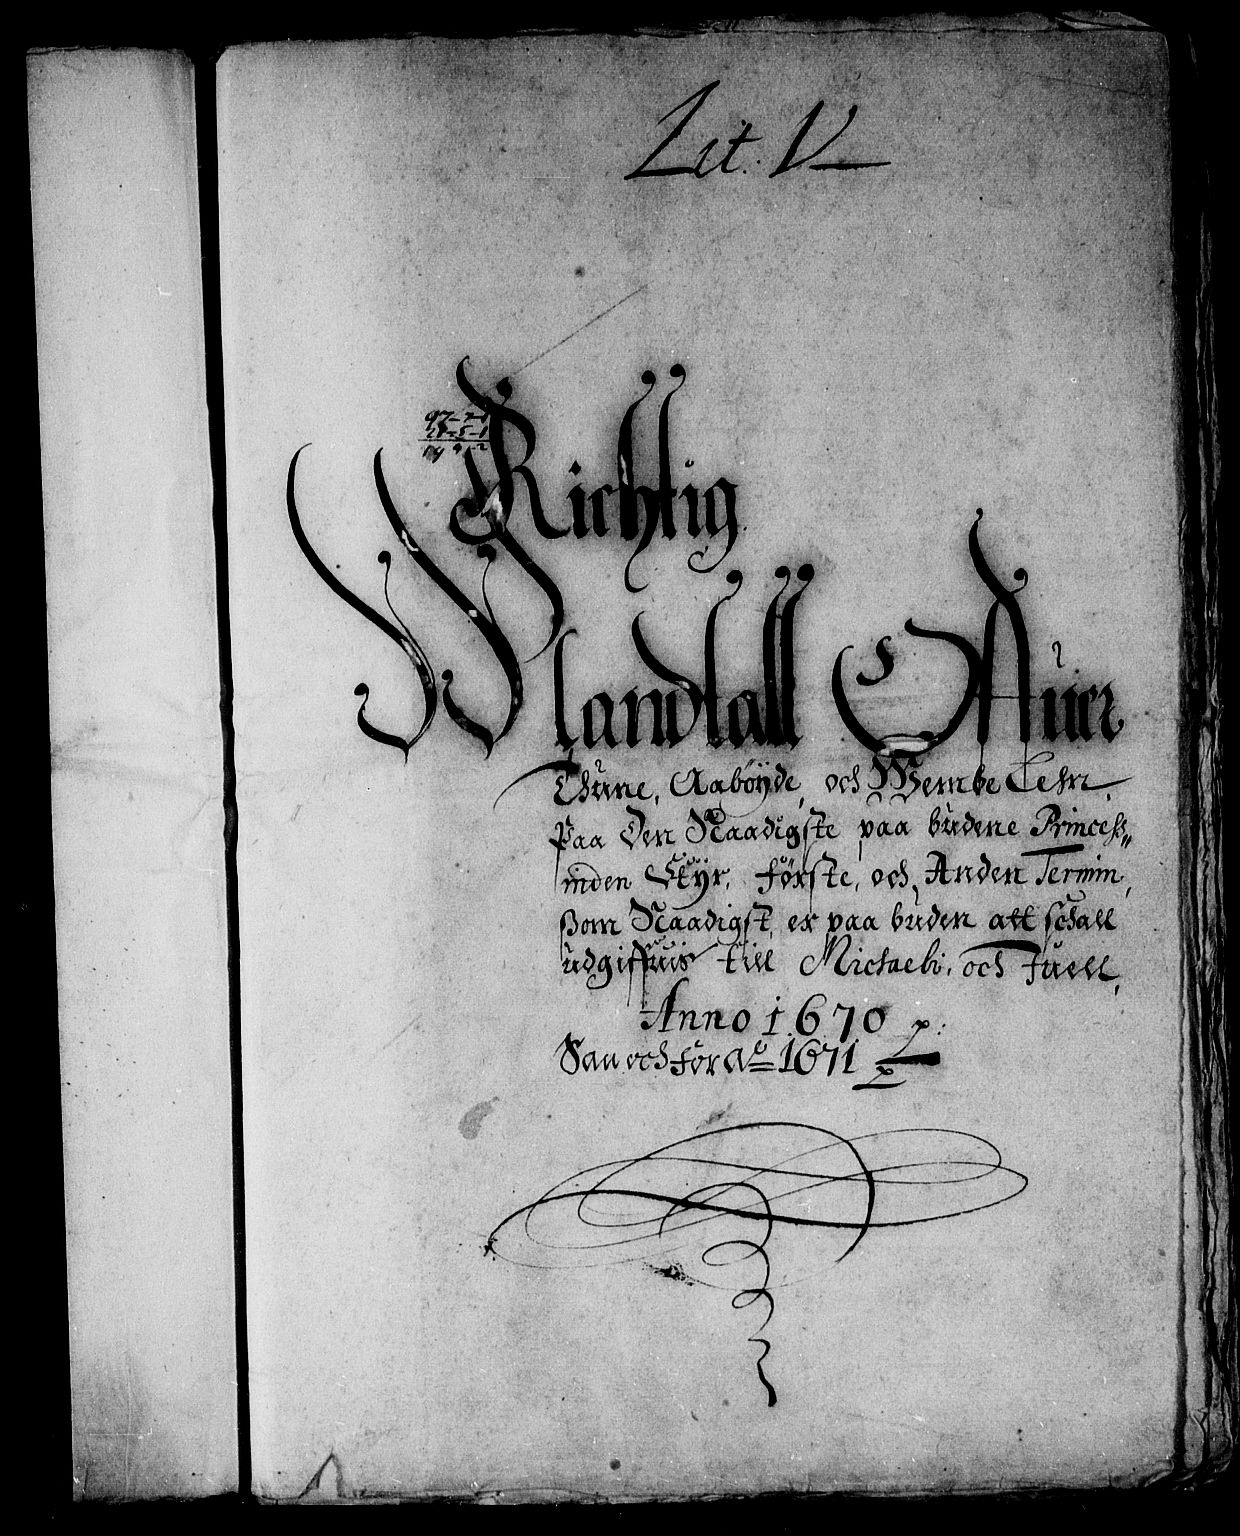 Lit. V
97-2-1
Richtig
Mandtall Offuer
Thune, Aaböyde, och Wembe Lehn,
Paa Den Naadigste paa budene Princess„
inden Styr, förste, och Anden Termin,
Som Naadigst, er paa buden att schall
udgiffuis till Michaeli, och Juell,
Anno 1670
Sau och för Ao 1671